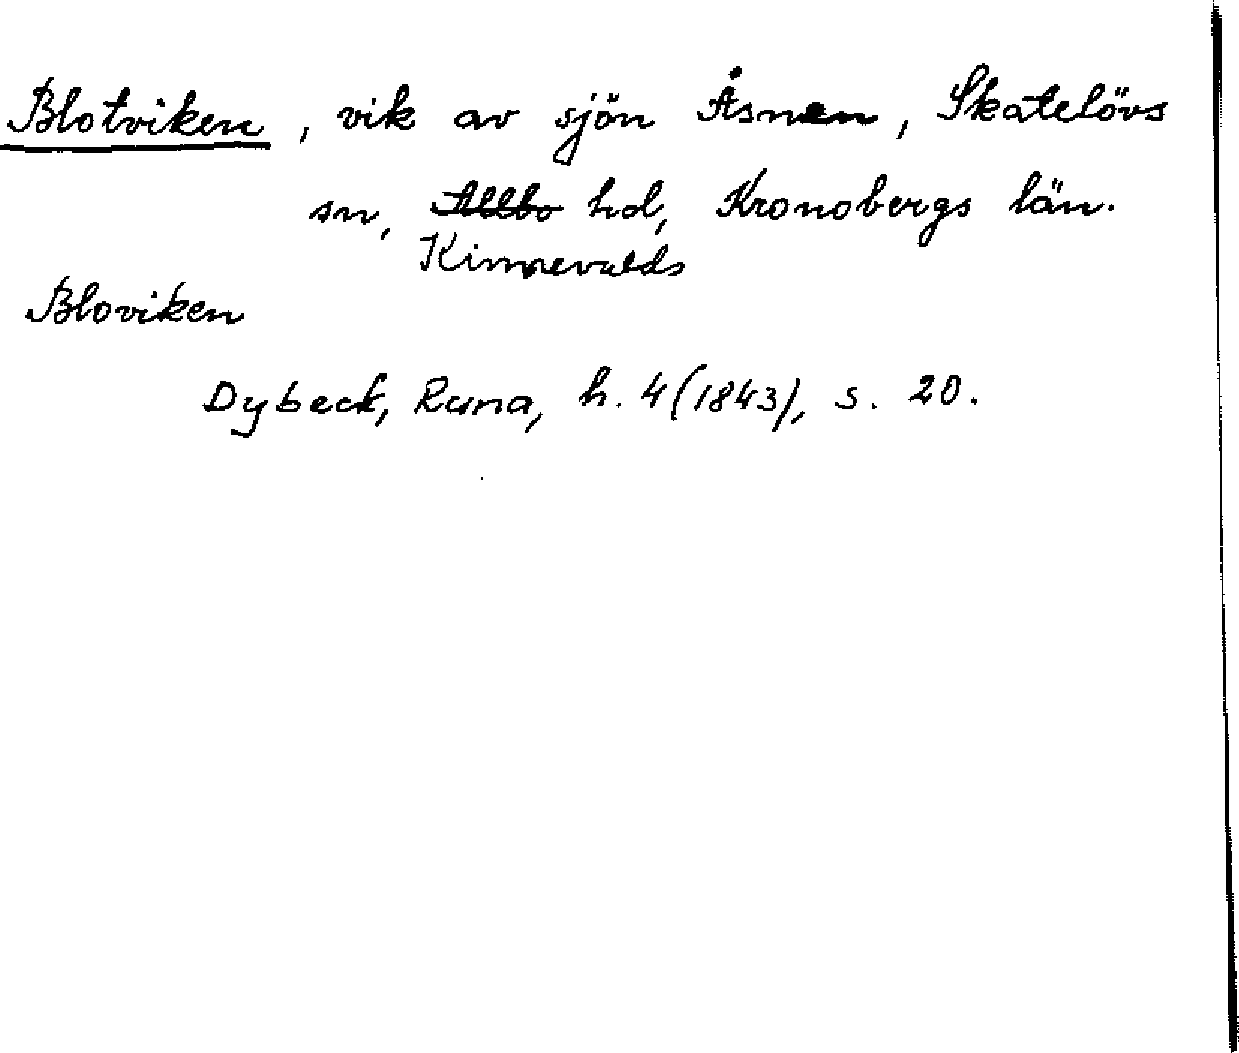 Blotviken, vik av sjön Åsnen, Skatelövs
sn, Allbo hd, Kronobergs län.
Kinnevalds
Bloviken
Dybeck, Runa, h. 4 (1843), s. 20.